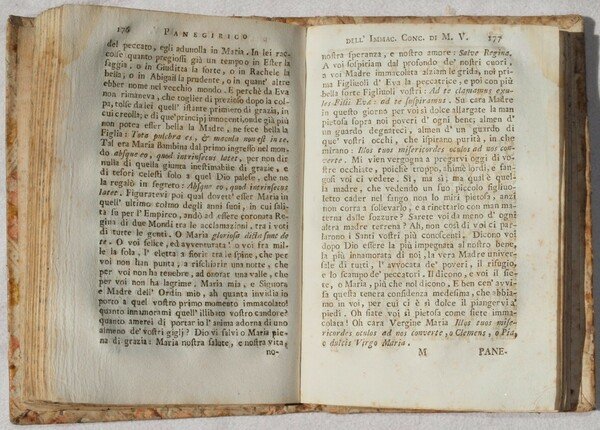 176 PANEGIRICO
del peccato, egli adunolla in Maria. In lei rac-
colse quanto pregiossi già un tempo in Ester la
saggia, o in Giuditta la forte, o in Rachele la
bella, o in Abigail la prudente, o in quant' altre
ebber nome nel vecchio mondo. E perchè da Eva
non rimaneva, che toglier di prezioso dopo la col-
pa, tolse da lei quell' istante primiero di grazia, in
cui creolla; e di que' principj innocenti, onde già più
non potea esser bella la Madre, ne fece bella la
Figlia: Tota pulchra es, & macula non est in te.
Tal era Maria Bambina dal primo ingresso nel mon-
do absque eo, quod intrinsecus latet, per non dir
nulla di quella giunta inestimabile di grazie, e
di tesori celesti solo a quel Dio palese, che ne
la regalò in segreto: Absque eo, quod intrinsecus
latet. Figuratevi poi qual dovett' esser Maria in
quell' ultimo colmo degli anni suoi, in cui sali-
ta su per l' Empireo, andò ad essere coronata Re-
gina di due Mondi tra le acclamazioni, tra i voti
di tutte le genti. O Maria gloriosa dicta sunt de
te. O voi felice, ed avventurata! o voi fra mil-
le la sola, l' eletta a fiorir tra le spine, che per
voi non han punta, a rischiarir una notte, che
per voi non ha tenebre, ad onorar una valle, che
per voi non ha lagrime. Maria mia, e Signora
e Madre dell' Ordin mio, ah quanta invidia io
porto a quel vostro primo momento immacolato!
quanto innamorami quell' illibato vostro candore?
quanto amerei di portar io l' anima adorna di uno
almeno de' vostri gigli? Dio vi salvi o Maria pie-
na di grazia: Maria nostra salute, e nostra vita,
no-
DELL' IMMAC. CONC. DI M. V. 177
nostra speranza, e nostro amore: Salve Regina.
A voi sospitiam dal profondo de' nostri cuori,
a voi Madre immacolata alziam le grida, noi pri-
ma Figliuoli d' Eva la peccatrice, e poi con più
bella sorte Figliuoli vostri: Ad te clamamus exu-
les Filii Eva: ad te suspiramus. Su cara Madre
in questo giorno per voi sì dolce allargate la man
pietosa sopra noi poveri d' ogni bene; almen d'
un guardo degnateci, almen d' un guardo di
que' vostri occhi, che ispirano purità, in che
mirano: Illos tuos misericordes oculos ad nos con-
verte. Mi vien vergogna a pregarvi oggi di vo-
stre occhiate, poichè troppo, ahimè lordi, e fan-
gosi voi ci vedete. Sì, ma sì; ma qual' è quel-
la madre, che vedendo un suo piccolo figliuo-
letto cader nel fango non lo miri pietosa, anzi
non corra a sollevarlo, e a rinettarlo con man ma-
terna dalle sozzure? Sarete voi da meno d' ogni
altra madre terrena? Ah, non così di voi ci par-
larono i Santi vostri più conoscenti. Dicono voi
dopo Dio essere la più impegnata al nostro bene,
la più innamorata di noi, la vera Madre univer-
sale di tutti, l' avvocata de' poveri, il rifugio,
e lo scampo de' peccatori. Il dicono, e voi il sie-
te, o Maria, più che nol dicono. E ben cel' avvi-
sa questa tenera confidenza medesima, che abbia-
mo in voi, per cui ci è sì dolce il piangervi a'
piedi. Oh siate voi sì pietosa come siete imma-
colata! Oh cara Vergine Maria Illos tuos mise-
ricordes oculos ad nos converte, o Clemens, o Pia,
e dulcis Virgo Maria.
M PANE-